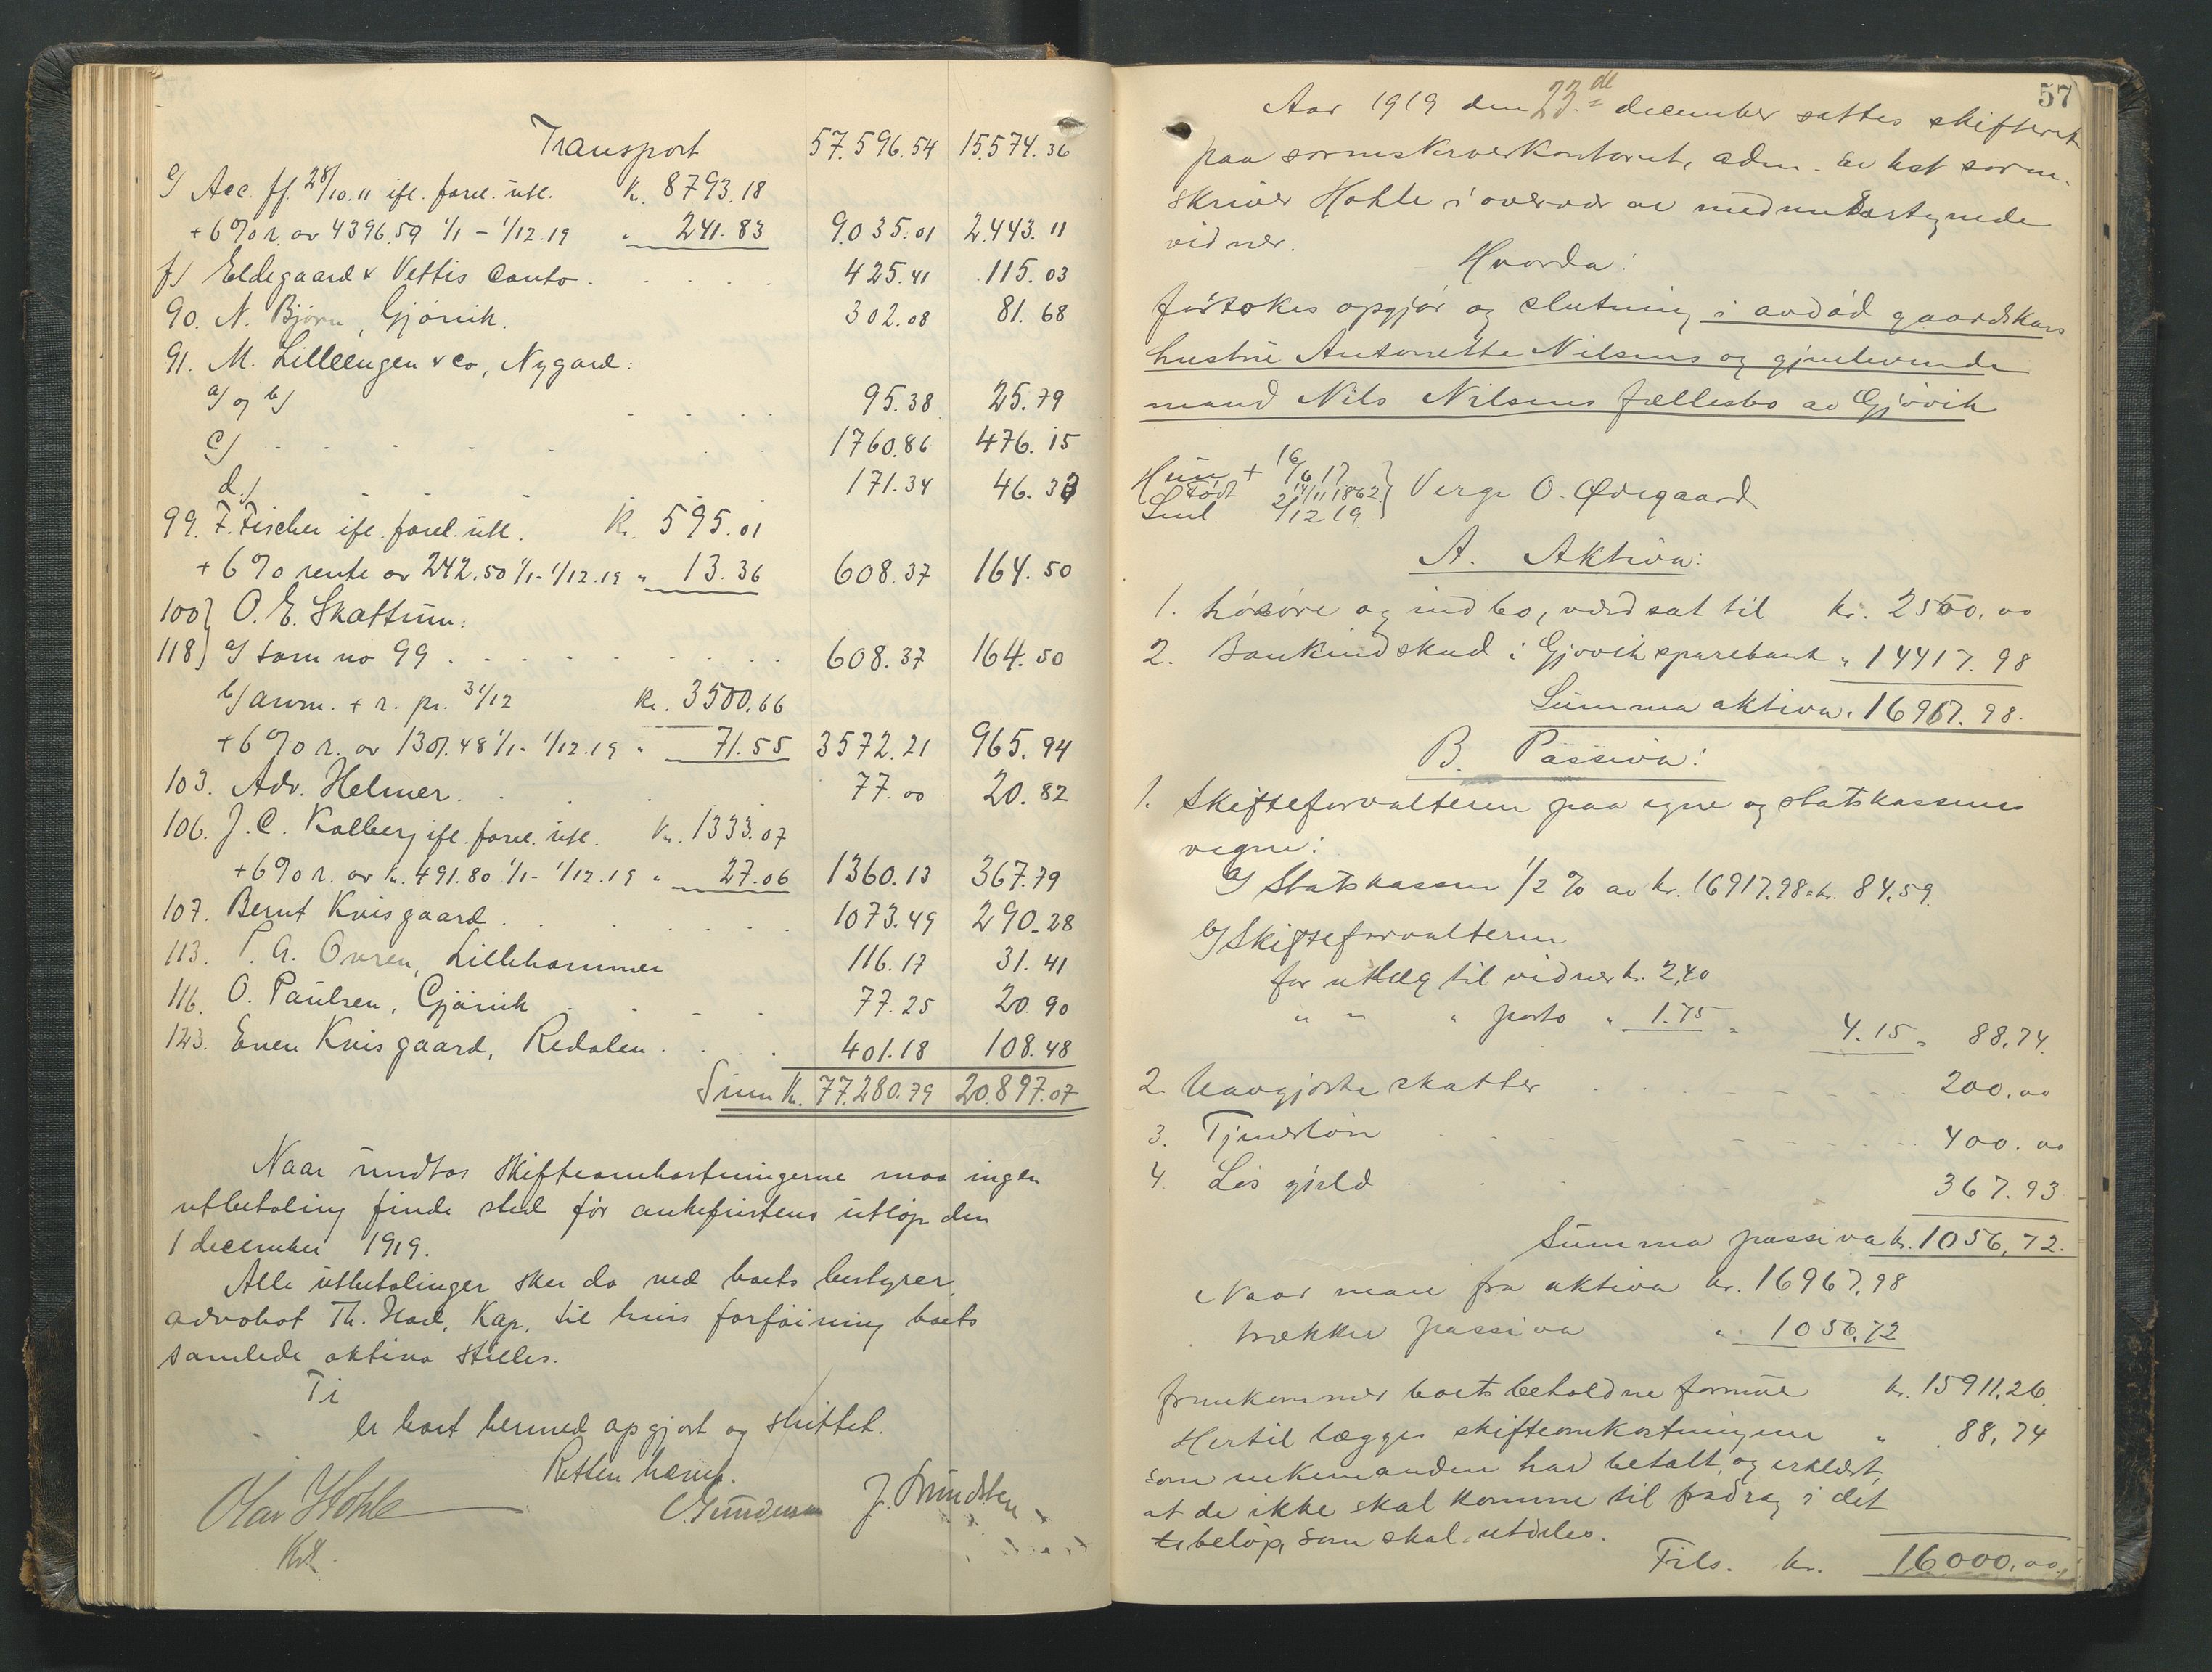 Transport 57.596.54 15.574.36
e/ Acc. ff. 28/10.11 ifl. forel. utl. Kr. 8793.18
+ 6% r. av 4396.59 1/1 - 1/12.19 " 241.83 9.035.01 2.443.11
f/ Eldegaard & Vettis Conto . . . . . 425.41 115.03
90. N. Bjørn, Gjøvik. 302.08 81.68
91. M. Lilleengen & co, Nygard:
a/ og b/ . . . . 95.38 25.79
c/ . . . . . . 1760.86 476.15
d./ . . . . . . 171.34 46.33
99. F. Fischer ifl. forel. utl. Kr. 595.01
+ 6% rente av 242.50 1/1-1/12.19 " 13.36 608.37 164.50
100} O. E. Skattum:
118} a/ som no 99 . . . . . . . . 608.37 164.50
b/ anm. + r. pr. 31/12 Kr. 3500.66
+ 6% r. av 1301.48 1/1-1/12.19 " 71.55 3572.21 965.94
103. Adv. Helmer. . . . 77.00 20.82
106. J. C. Kolberg ifl. forel. utl. Kr. 1333.07
+ 6% r. av kr. 491.80 1/1-1/12.19 " 27.06 1360.13 367.79
107. Bernt Kvisgaard . . . . . . . 1073.49 290.28
113. T. A. Ovren, Lillehammer 116.17 31.41
116. O. Paulsen, Gjøvik . . . . 77.25 20.90
123. Even Kvisgaard, Redalen . . . . 401.18 108.48
Sum Kr. 77.280.79 20.897.07
Naar undtas skifteomkostningerne maa ingen
utbetaling finde sted før ankefristens utløp den
1 december 1919.
Alle utbetalinger sker da ved boets bestyrer,
advokat Th. Hoel, Kap, til hvis forføining boets
samlede aktiva stilles.
Ti
er boet hermed opgjort og sluttet.
Retten hævet.
Olav Hohle C. Gundersen J. Trundsen
Kst.
57
Aar 1919 den 23.de december sattes skifteret
paa sorenskriverkontoret, adm. av kst soren-
skriver Hohle i overvær av medundertegnede
vidner.
Hvorda:
foretokes opgjør og slutning i avdød gaardskars
hustru Antonette Nilsens og gjenlevende
mand Nils Nilsens fællesbo av Gjøvik
Hun + 16/6 17
Født 14/11 1862 } Verge O. Ødegaard
Sml. 2/12 19
A. Aktiva:
1. Løsøre og indbo, værdsat til kr. 2550.00
2. Bankindskud i Gjøvik sparebank " 14417.98
Summa aktiva " 16967.98.
B. Passiva:
1. Skifteforvalteren paa egne og statskassens
vegne:
a/ Statskassen 1/2 % av kr. 16917.98 = kr. 84.59.
b/ Skifteforvalteren
for utlæg til vidner kr. 2,40
" " " porto " 1.75 = 4.15 = 88,74.
2. Uavgjorte skatter . . . . . . . 200,00
3. Tjenerløn . . . . . . . . 400.00
4. Løs gjeld . . . . . 367.93
Summa passiva kr. 1056,72.
Naar man fra aktiva kr. 16967,98
trækker passiva " 1056,72
fremkommer boets beholdne formue kr. 15911,26.
Hertil lægges skifteomkostningene " 88,74
som enkemanden har betalt, og erklært,
at de ikke skal komme til fradrag i det
te beløp, som skal utdeles.
Tils. kr. 16000,00.